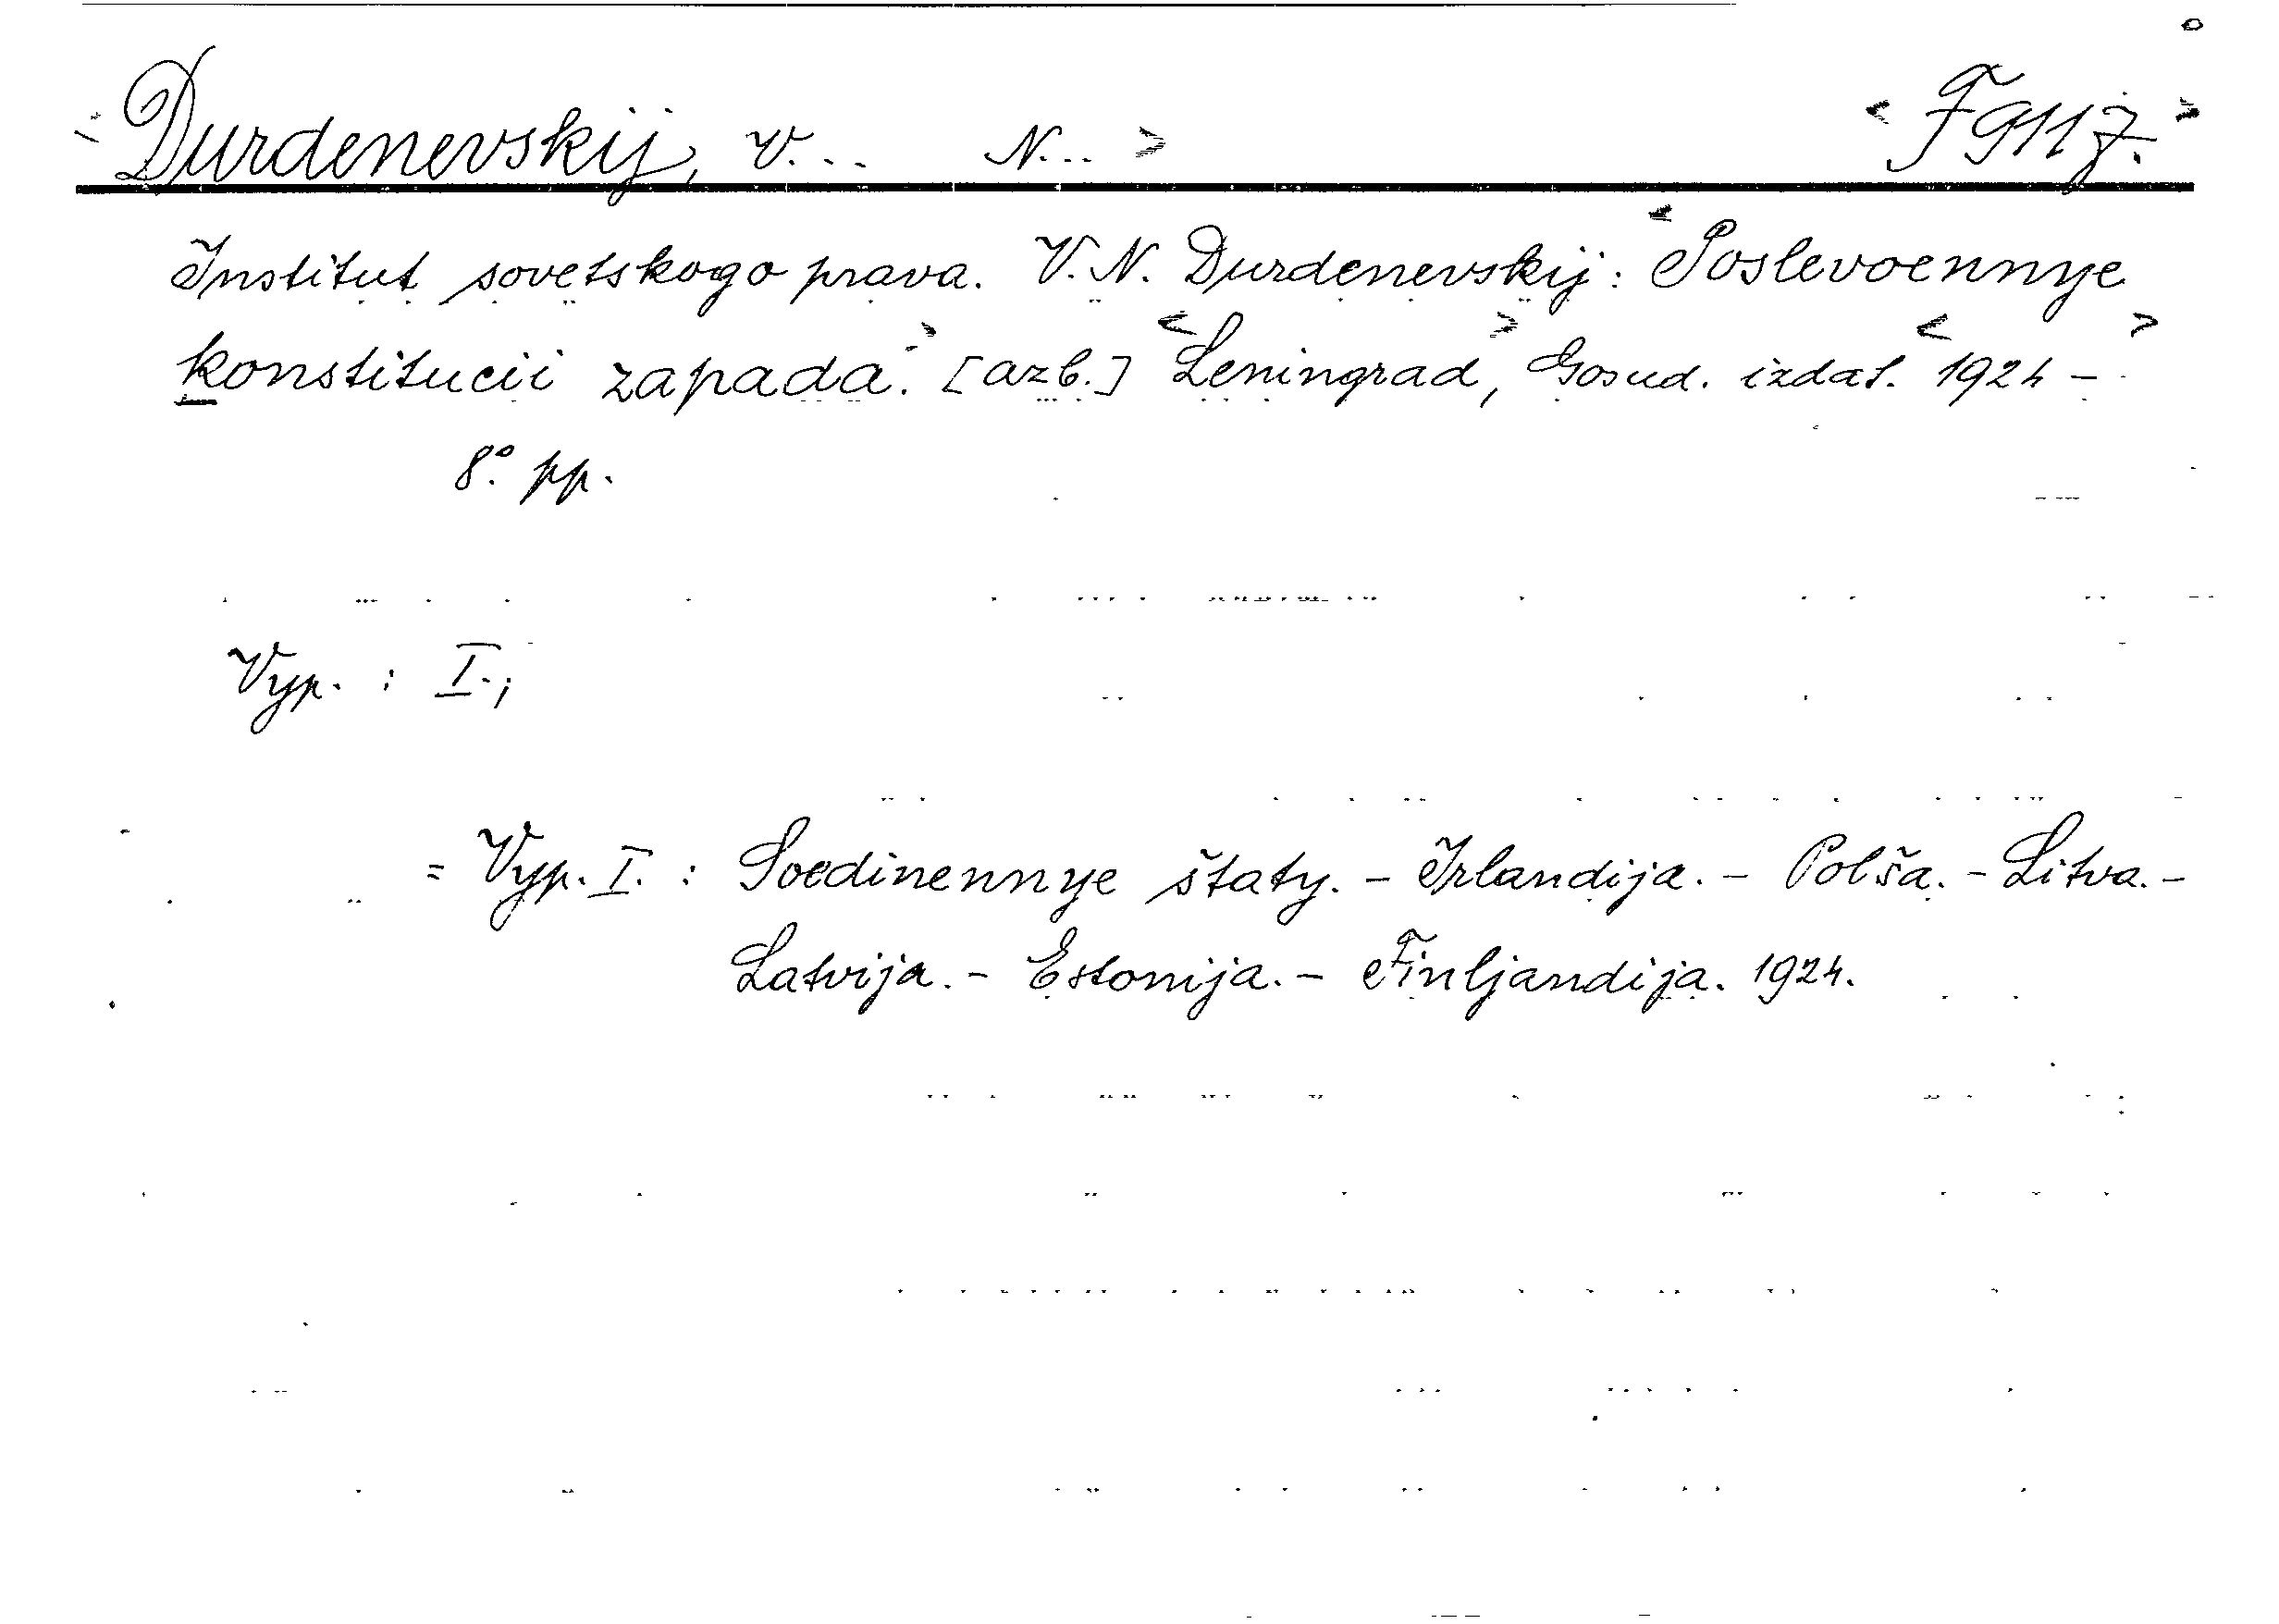 <Durdenevskij, V... N...> <F 9117.>
Institut sovetskogo prava. V. N. Durdenevskij: <Poslevoennye
konstitucii zapada.> [azb.] <Leningrad>, Gosud. izdat. <1924 - >
8° pp.
Vyp. : I.;
= Vyp. I. : Soedinennye štaty. - Irlandija. - Polša. - Litva. -
Latvija. - Estonija. - Finljandija. 1924.